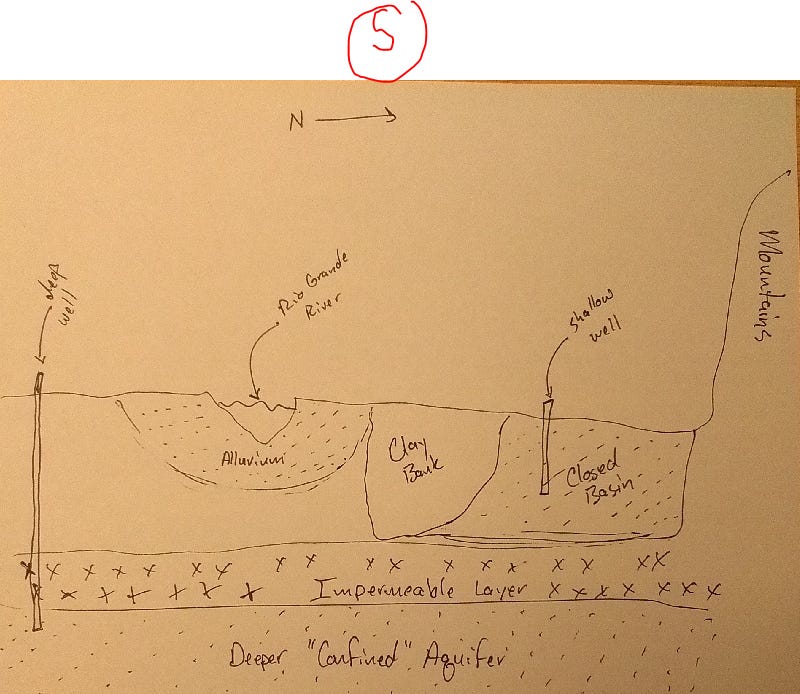 5
N
deep
well
Rio Grande
River
shallow
well
Mountains
Alluvium
Clay
Bank
Closed
Basin
Impermeable Layer
Deeper "Confined" Aquifer